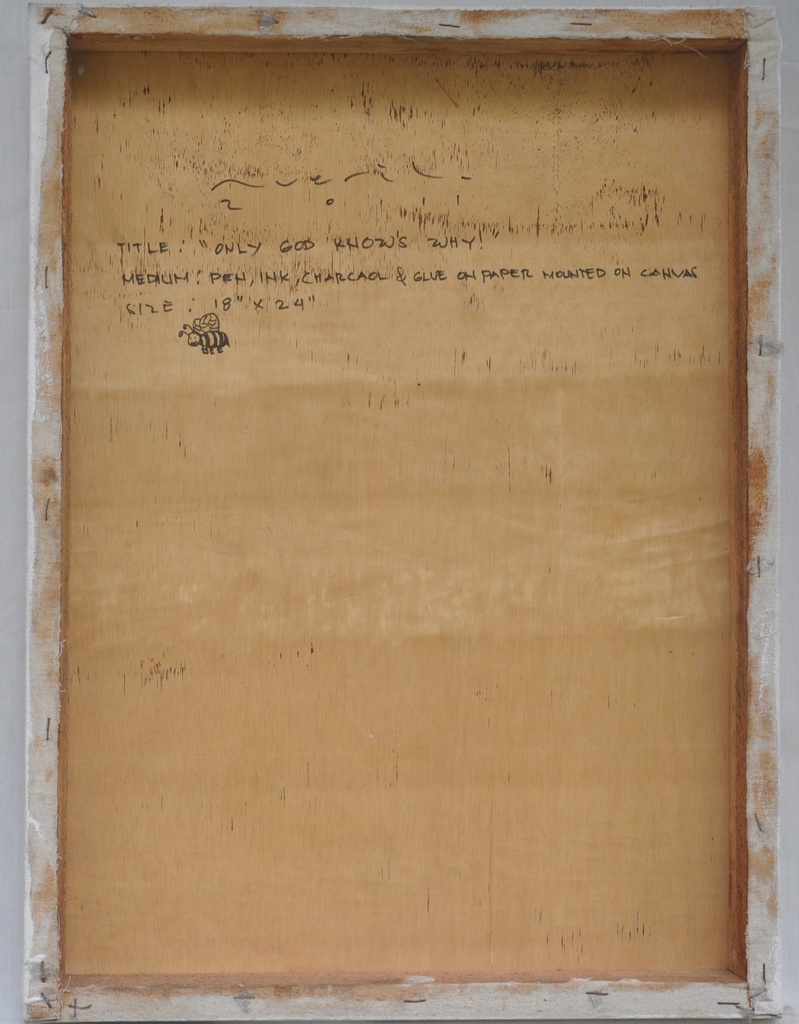 2 0 1 1
TITLE : "ONLY GOD KNOW'S WHY!"
MEDIUM : PEN, INK, CHARCAOL & GLUE ON PAPER MOUNTED ON CANVAS
SIZE : 18" X 24"
BEE